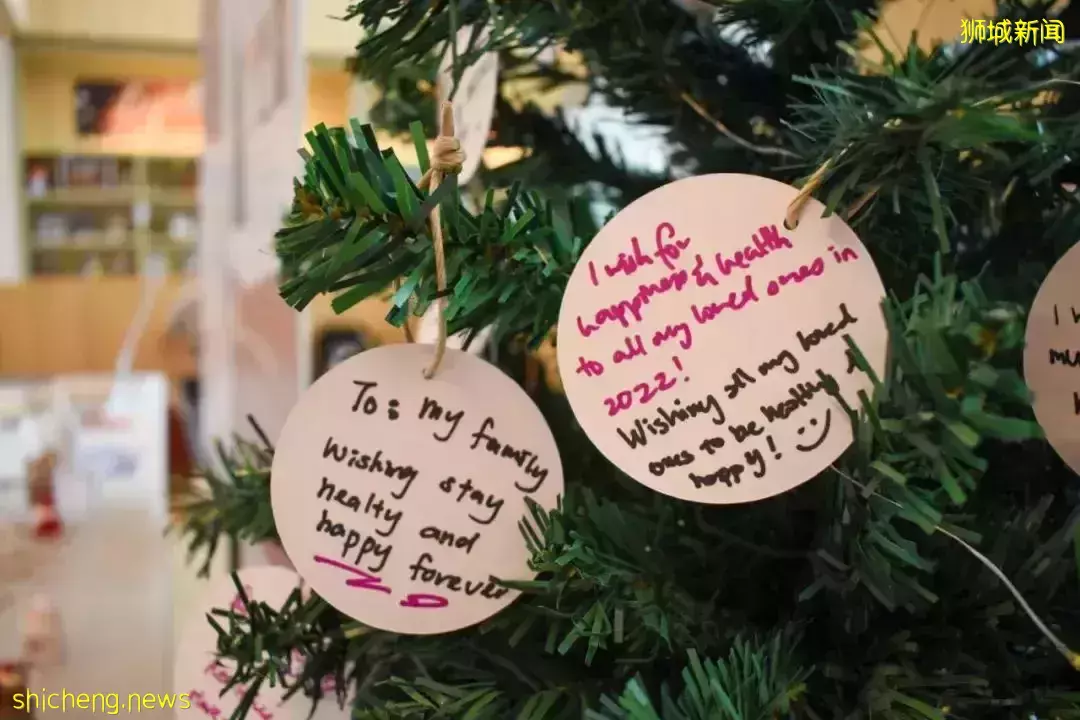 狮城新闻
I wish for
happiness & health
to all my loved ones in
2022!
Wishing all my loved
ones to be healthy &
happy!
To: my family
wishing stay
healty and
happy forever
I
shicheng.news